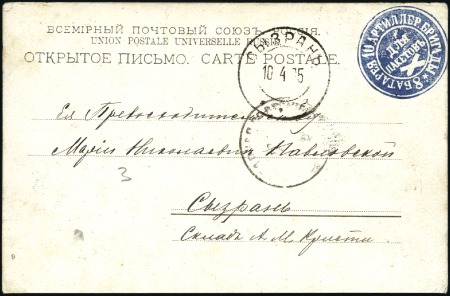 ВСЕМІРНЫЙ ПОЧТОВЫЙ СОЮЗЪ. РОССІЯ.
UNION POSTALE UNIVERSELLE
ОТКРЫТОЕ ПИСЬМО. CARTE POSTALE.
СЫЗРАНЬ
10 4 05
8 БАТАРЕЯ 10 АРТИЛЛЕР. БРИГАДЫ
ДЛЯ ПАКЕТОВЪ
Ея Превосходительству
Маріи Николаевнѣ Павловской
3
Сызрань
Складъ А. М. Кристи
9